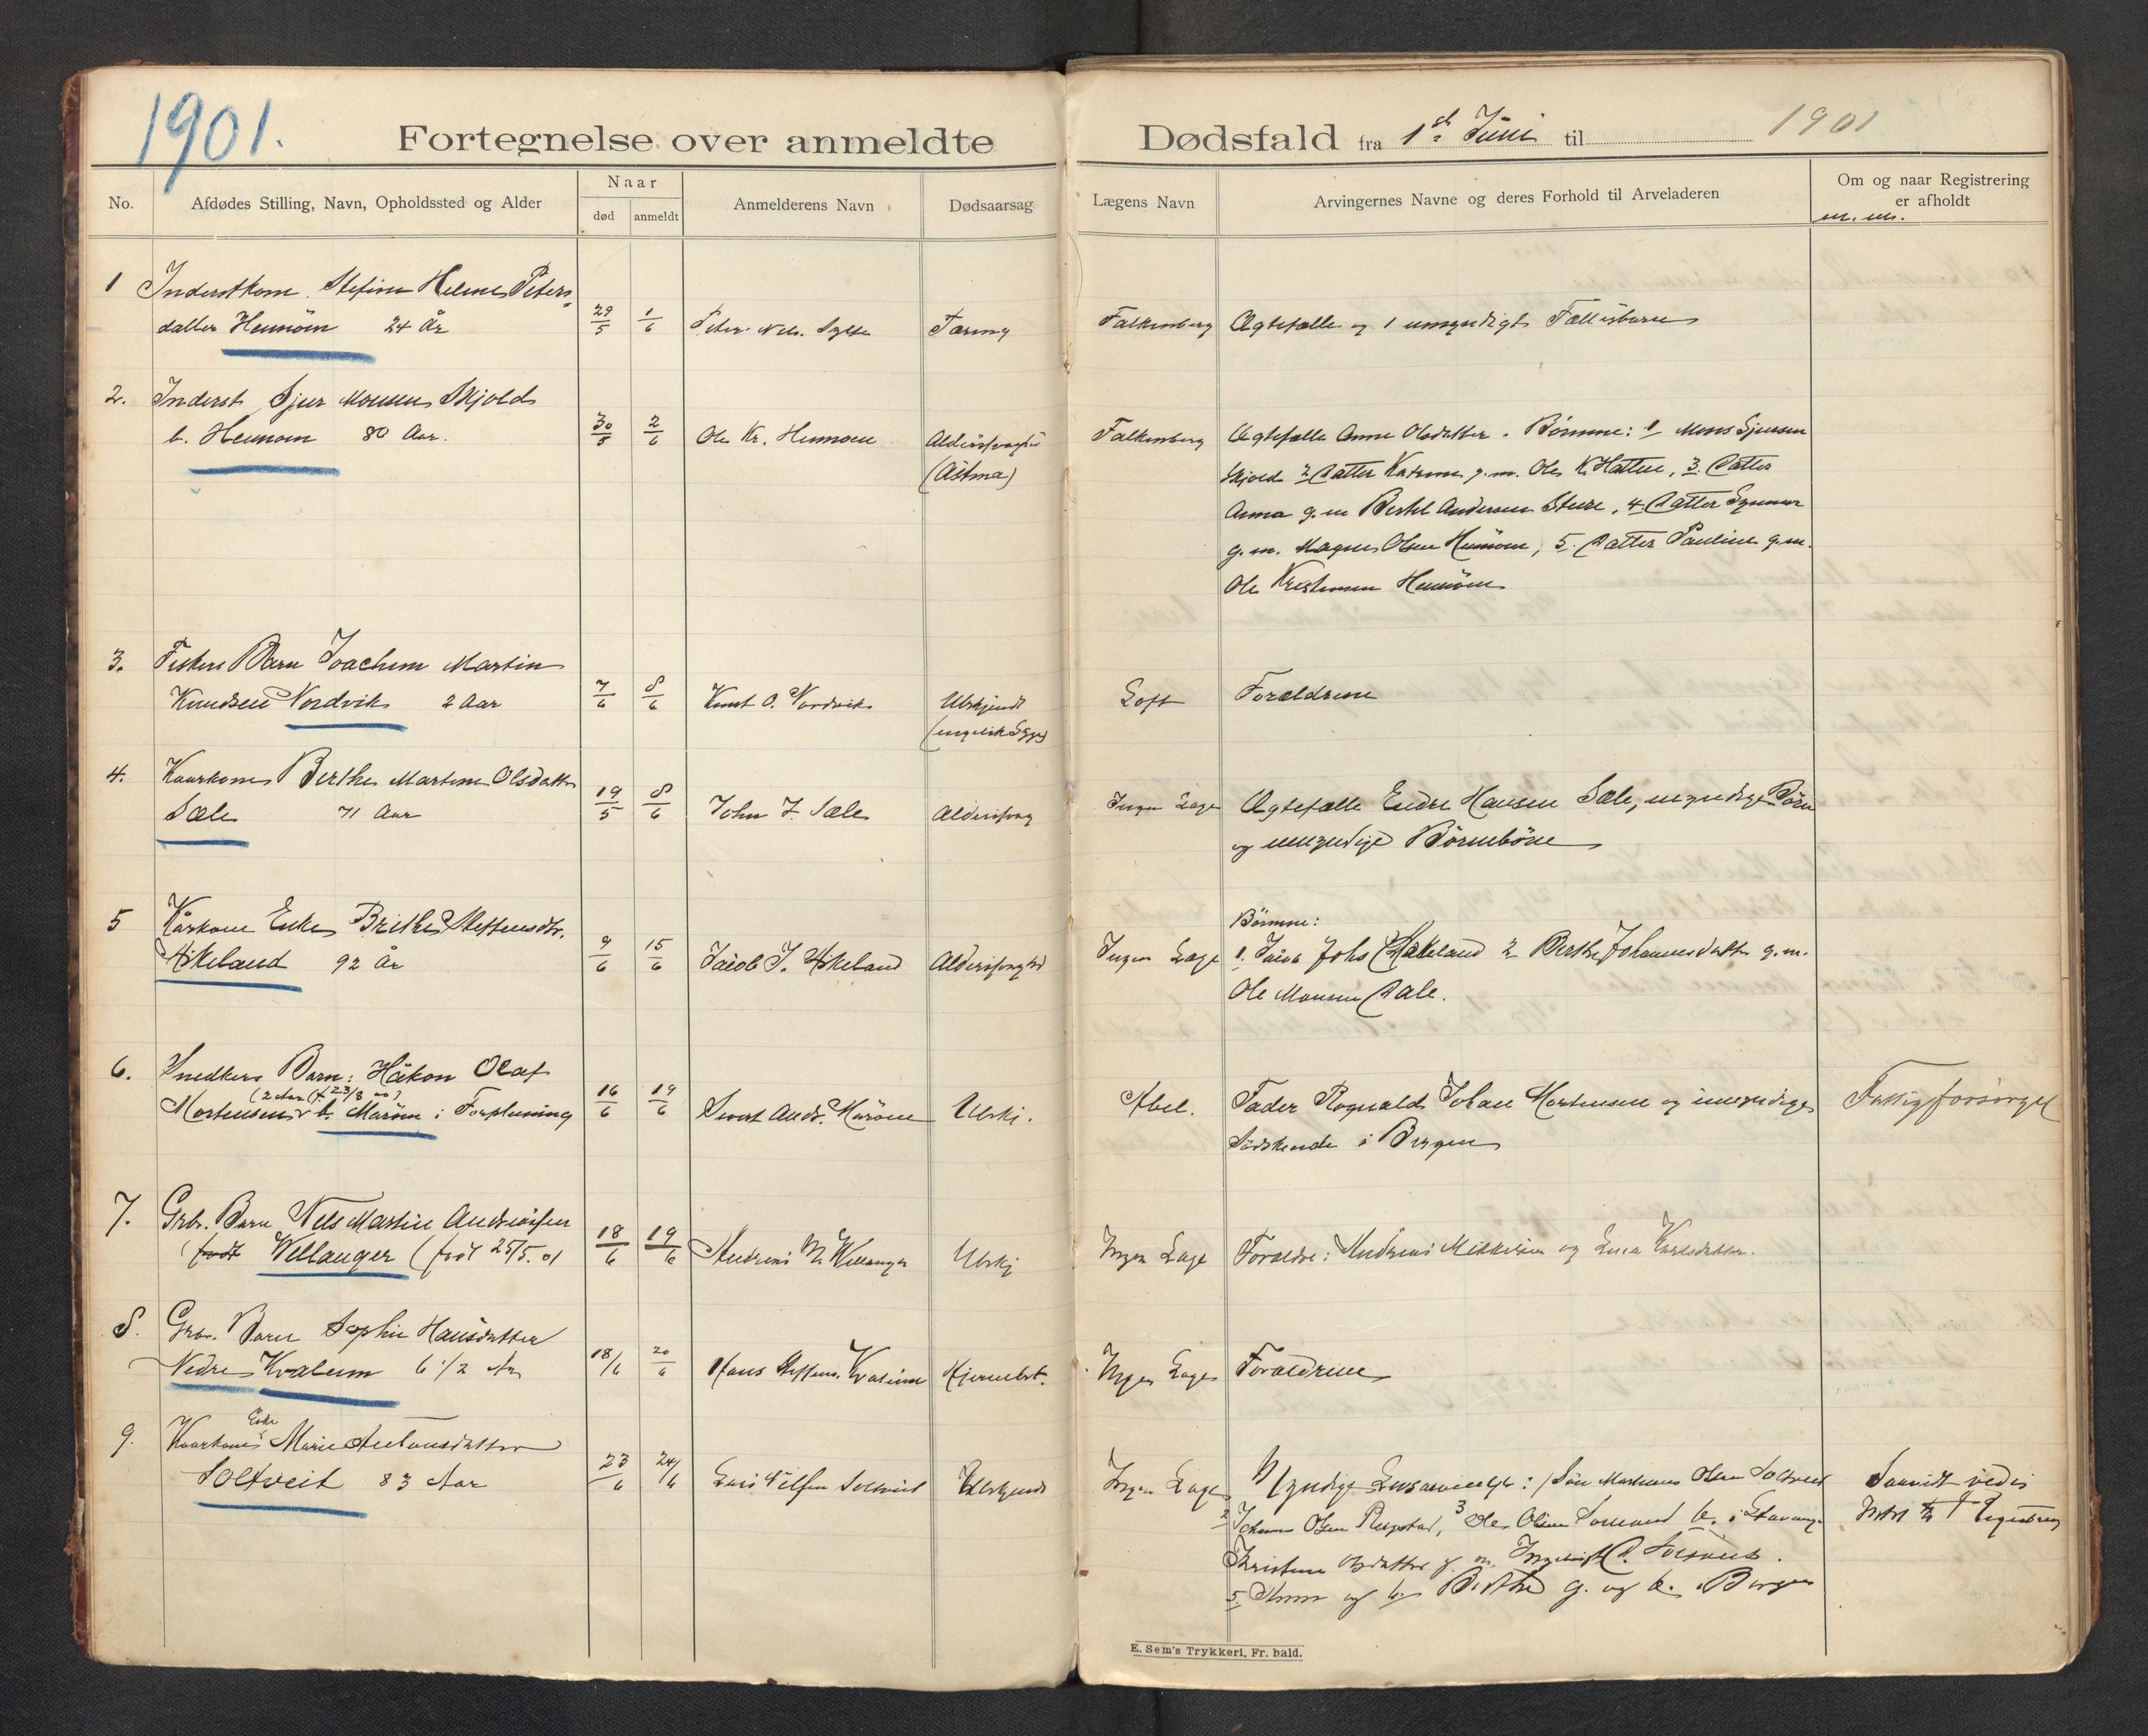 1901.
Fortegnelse over anmeldte Dødsfald fra 1st Juni til 1901
No.
Afdødes Stilling, Navn, Opholdssted og Alder
Naar
død
anmeldt
Anmelderens Navn
Dødsaarsag
Lægens Navn
Arvingernes Navne og deres Forhold til Arveladeren
Om og naar Registrering
er afholdt
m. m.
1 Inderstkone Stefine Helene Peters-
datter Hennöen 24 År 29/5 1/6 Peter Tæring Falkenberg Ægtefælle og 1 umyndigt Fællesbarn
2. Inderst Sjur Monsen Skjold
b. Hennoen 80 Aar. 30/5 2/6 Ole Kr. Hennoen Falkenberg Ægtefælle Anne Olsdatter. Börnene: 1 Mons Sjursen
(Astma) Skjold 2 Datter g.m. Ole K. 3. Datter
Anna g. m Bertel Andersen Sture, 4 Datter
g. m. Magnus Olsen Hennöen, 5. Datter Pauline g.m.
Ole Kristensen Hennöen
3. Fiskers Barn Joachim Martin
Knudsen Nordvik 2 Aar 7/6 8/6 Knut O. Nordvik Ubekjendt Loft Forældrene
(engelsk Syge)
4. Kaarkone Berthe Martine Olsdatter
Sæle 71 Aar 19/5 8/6 John J. Sæle Ingen Læge Ægtefælle Endre Hansen Sæle, myndige Börn
og umyndige Börnebörn
5 Kårkone Enke Brithe Steffensdtr. Börnene:
Askeland 92 År 9/6 15/6 Jacob J. Askeland Ingen Læge 1. Jacob Johs Askeland 2 Berthe Johannesdatter g. m.
Ole Monsen Dale.
6. Snedkers Barn: Håkon Olaf
(2 Aar (f. 23/8
Mortensen b. Maröen i Forpleining 16/6 19/6 Sivert Andr. Maröen Ubekj. Abel. Fader Rognald Johan Mortensen og umyndige Fattigforsörget
Södskende i Bergen
7. Grb. Barn Nils Martin Andreassen
Villanger (født 25/5. 01 18/6 19/6 Andreas M. Villanger Ubekj Ingen Læge Forældre: Andreas Mikkelsen og Karlsdatter.
8. Grb. Barn Sophie Hansdatter
Nedre Kvalem 6 1/2 Ar 18/6 20/6 Hans Steffens. Kvalem Hjernebet. Ingen Læge Forældrene
Enke
9. Kaarkone Marie Antonsdatter
Soltveit 83 Aar 23/6 24/6 Soltveit Ubekjendt Ingen Læge Myndige : 1 Sön Olsen Soltveit Saavidt vides
2 Johannes Olsen 3 Ole Olsen b. i Stavanger
Olsdatter g. m.
5 Anna og 6 Berthe g. og b. i Bergen
E. Sem's Trykkeri, Fr. hald.